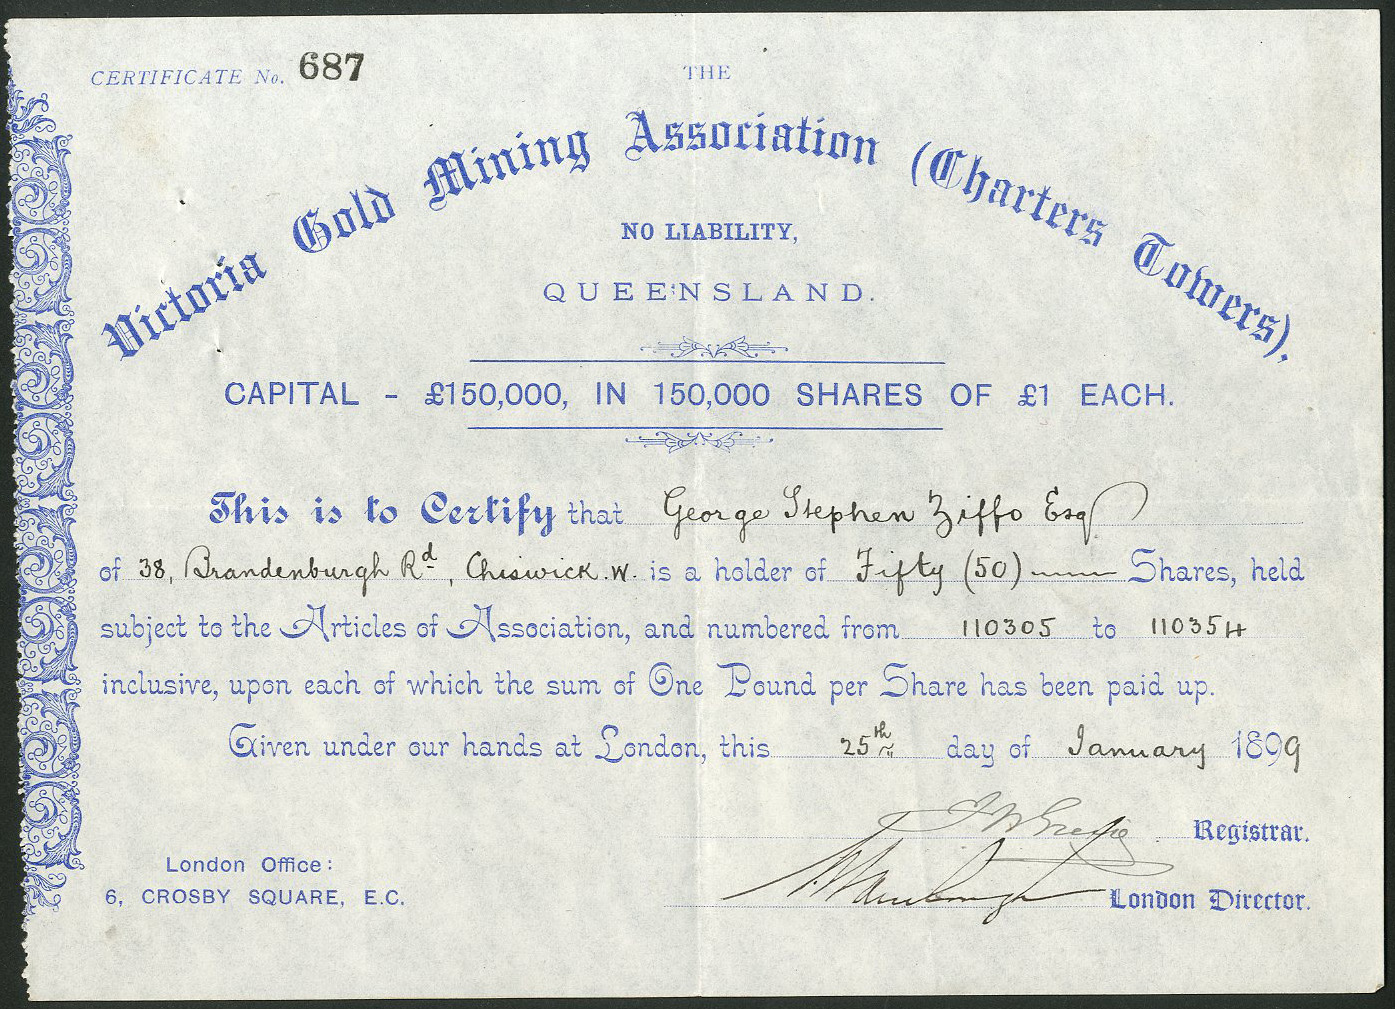 CERTIFICATE No. 687
THE
Victoria Gold Mining Association (Charters Towers),
NO LIABILITY,
QUEENSLAND.
CAPITAL - £150,000, IN 150,000 SHARES OF £1 EACH.
This is to Certify that George Stephen Ziffo Esq
of 38, Brandenburgh Rd, Chiswick. W. is a holder of Fifty (50) Shares, held
subject to the Articles of Association, and numbered from 110305 to 110354
inclusive, upon each of which the sum of One Pound per Share has been paid up.
Given under our hands at London, this 25th day of January 1899
Registrar.
London Office:
6, CROSBY SQUARE, E.C.
London Director.